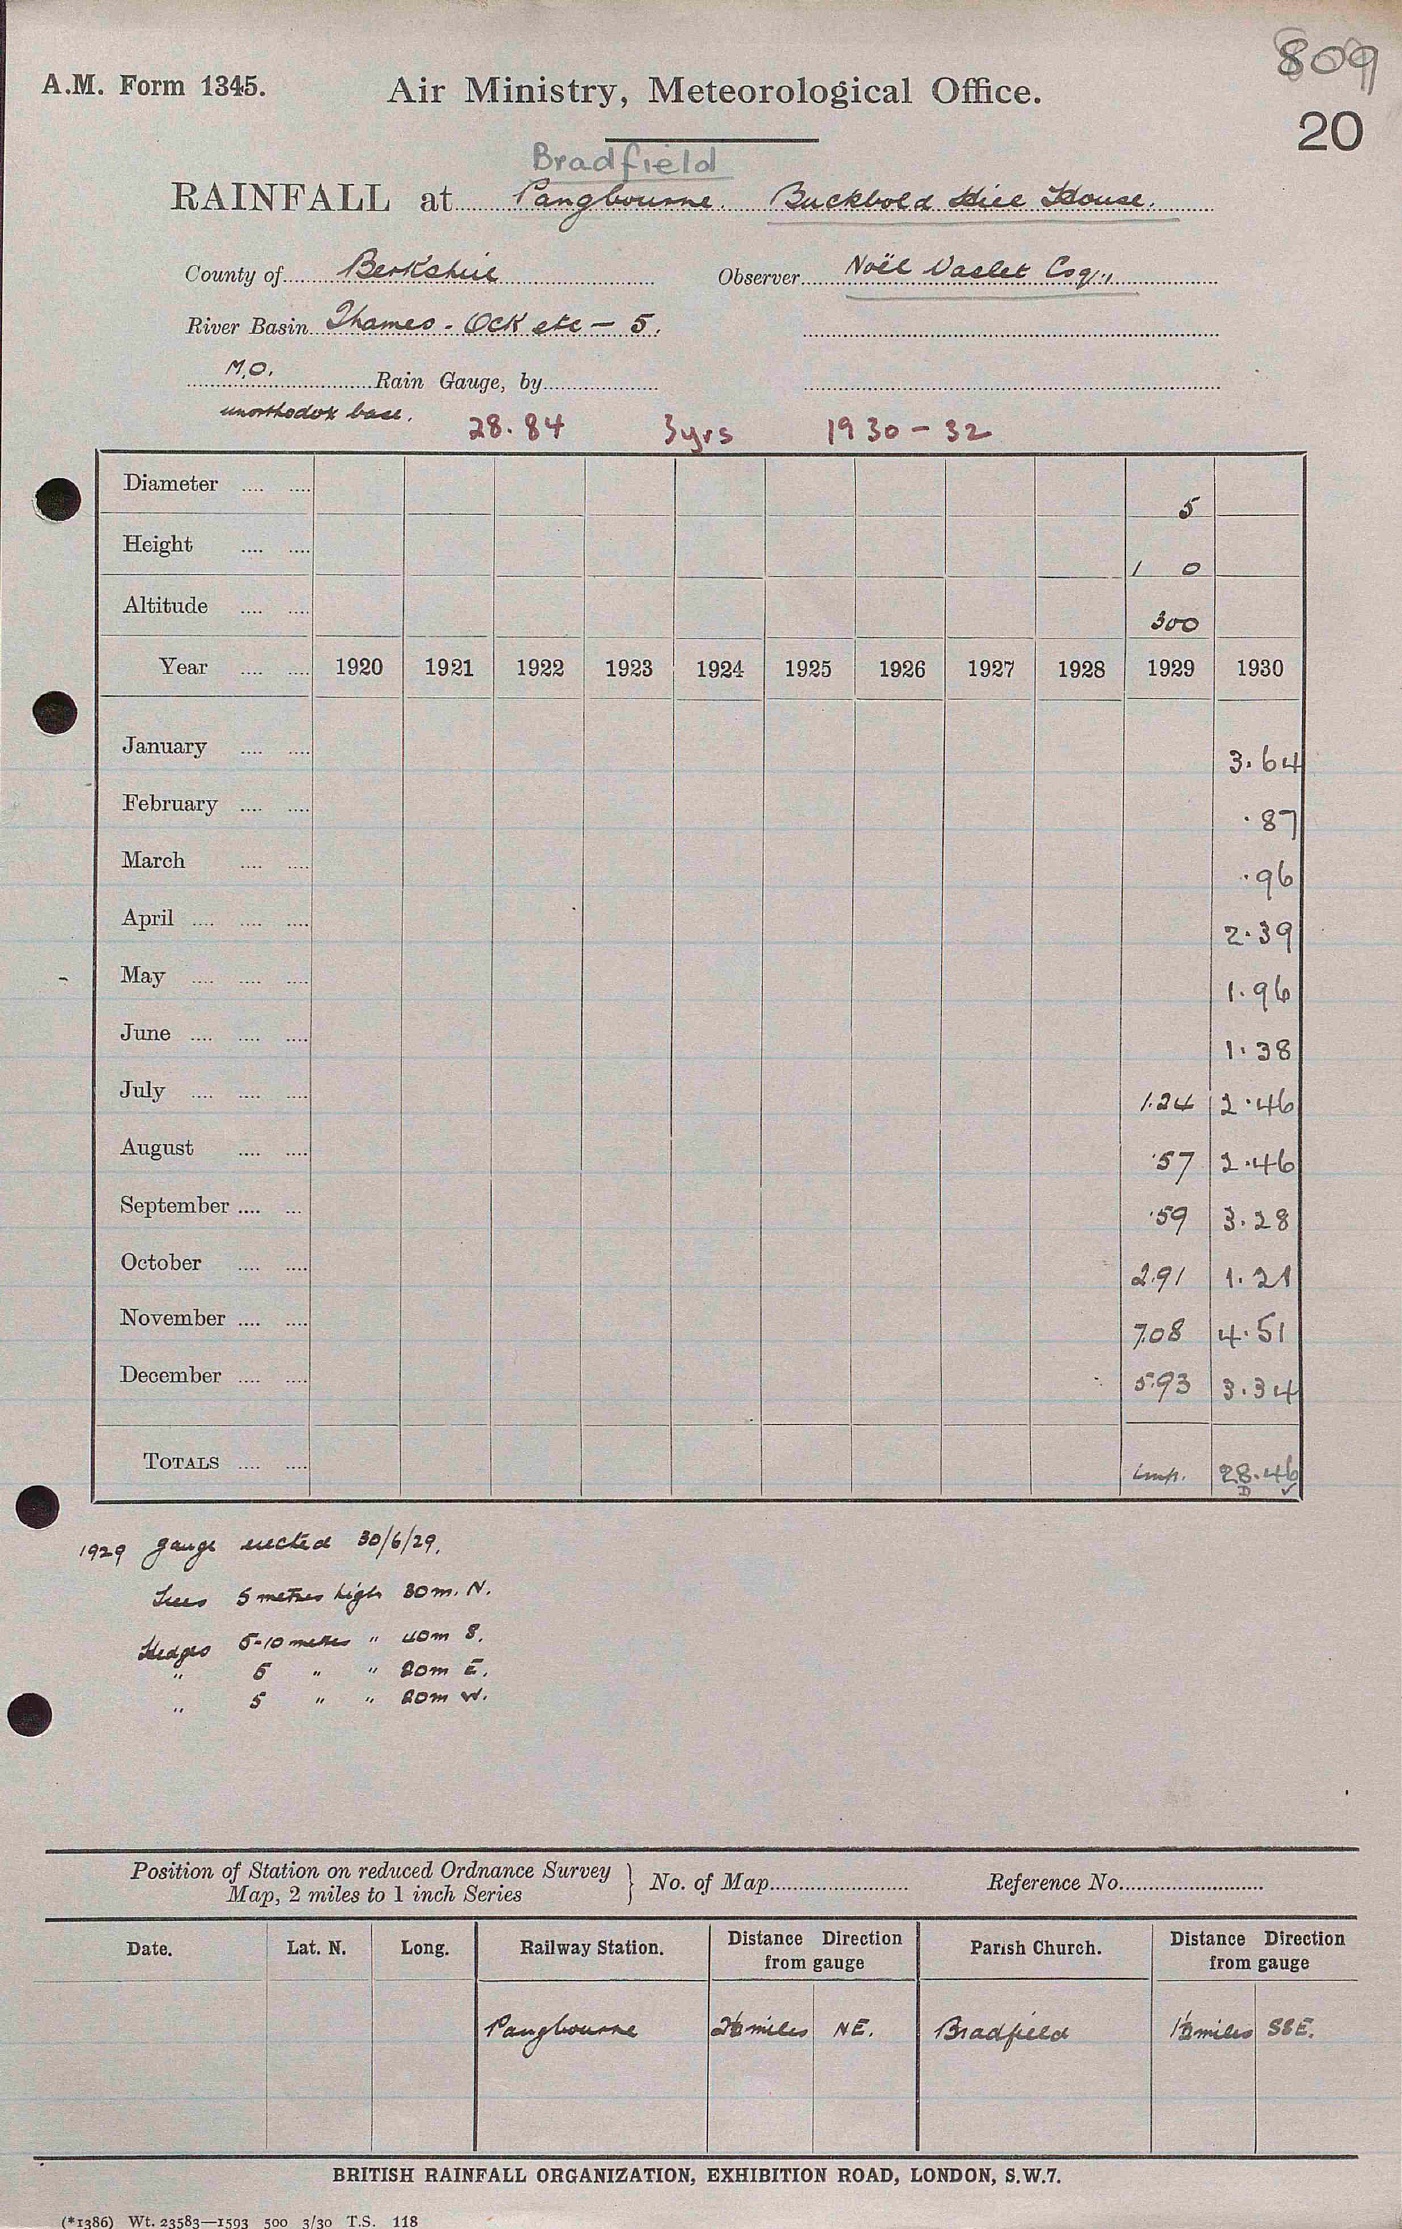 809
A.M. Form 1345. Air Ministry, Meteorological Office.
20
Bradfield
RAINFALL at Pangbourne. Buckhold Hill House.
County of Berkshire Observer Noël Vaslet Esq.,
River Basin Thames - Ock etc - 5.
M.O. Rain Gauge, by
unorthodox base.
28.84 3yrs 1930-32
Diameter .... .... 5
Height .... .... 1 0
Altitude .... .... 300
Year .... .... 1920 1921 1922 1923 1924 1925 1926 1927 1928 1929 1930
January .... .... 3.64
February .... .... .87
March .... .... .96
April .... .... .... 2.39
May .... .... .... 1.96
June .... .... .... 1.38
July .... .... .... 1.24 2.46
August .... .... .57 2.46
September .... ... .59 3.28
October .... .... 2.91 1.21
November .... .... 7.08 4.51
December .... .... 5.93 3.34
TOTALS .... .... imp. 28.46
D ✓
1929 gauge erected 30/6/29.
Trees 5 metres high 30m. N.
Hedges 5-10 metres " 40m S.
" 5 " " 20m E.
" 5 " " 20m W.
Position of Station on reduced Ordnance Survey
Map, 2 miles to 1 inch Series } No. of Map Reference No.
Date. Lat. N. Long. Railway Station. Distance Direction from gauge Parish Church. Distance Direction from gauge
Pangbourne 2½ miles NE. Bradfield 1½ miles SSE.
BRITISH RAINFALL ORGANIZATION, EXHIBITION ROAD, LONDON, S.W.7.
(*1386) Wt. 23583—1593 500 3/30 T.S. 118